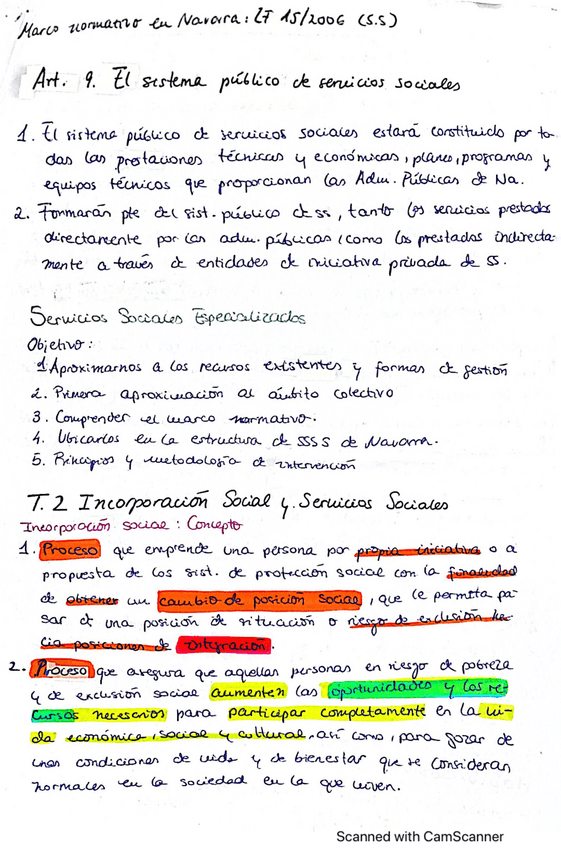 Marco normativo en Navarra: LF 15/2006 (S.S)
Art. 9. El sistema público de servicios sociales
1. El sistema público de servicios sociales estará constituido por to-
das las prestaciones técnicas y económicas, planes, programas y
equipos técnicos que proporcionan las Adm. Públicas de Na.
2. Formarán pte del sist. público de ss, tanto los servicios prestados
directamente por las adm. públicas, como los prestados indirecta-
mente a través de entidades de iniciativa privada de SS.
Servicios Sociales Especializados
Objetivo:
1. Aproximarnos a los recursos existentes y formas de gestión
2. Primera aproximación al ámbito colectivo
3. Comprender el marco normativo.
4. Ubicarlos en la estructura de SSSS de Navarra.
5. Principios y metodología de intervención
T.2 Incorporación Social y Servicios Sociales
Incorporación social: Concepto
1. Proceso que emprende una persona por propia iniciativa o a
propuesta de los sist. de protección social con la finalidad
de obtener un cambio de posición social, que le permita pa-
sar de una posición de situación o riesgo de exclusión ha-
cia posiciones de integración.
2. Proceso que asegura que aquellas personas en riesgo de pobreza
y de exclusión social aumenten las oportunidades y los re-
cursos necesarios para participar completamente en la vi-
da económica, social y cultural, así como, para gozar de
unas condiciones de vida y de bienestar que se consideran
normales en la sociedad en la que viven.
Scanned with CamScanner